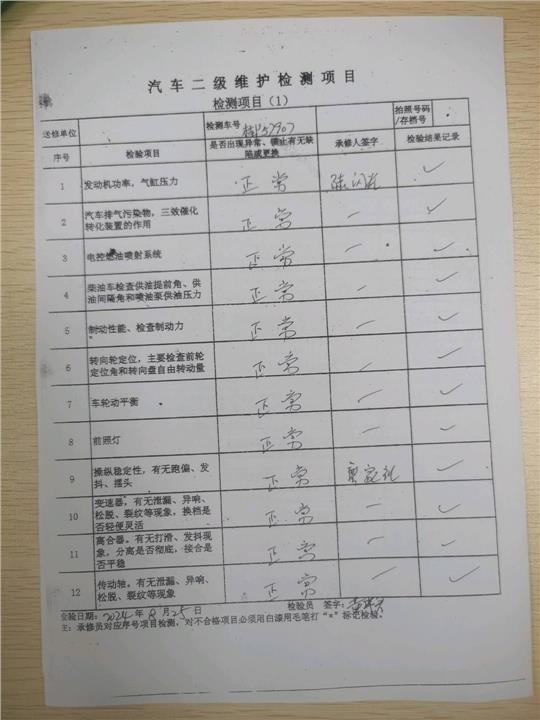 汽车二级维护检测项目
检测项目（1）
送修单位
检测车号
拍照号码/存档号
序号 检验项目 是否出现异常、锁止有无缺陷或更换 承修人签字 检验结果记录
1 发动机功率，气缸压力 正常 ✓
2 汽车排气污染物，三效催化转化装置的作用 正常 — ✓
3 电控燃油喷射系统 正常 — ✓
4 柴油车检查供油提前角、供油间隔角和喷油泵供油压力 正常 — ✓
5 制动性能、检查制动力 正常 — ✓
6 转向轮定位，主要检查前轮定位角和转向盘自由转动量 正常 — ✓
7 车轮动平衡 正常 — ✓
8 前照灯 正常 — ✓
9 操纵稳定性，有无跑偏、发抖、摆头 正常 ✓
10 变速器，有无泄漏、异响、松脱、裂纹等现象，换档是否轻便灵活 正常 — ✓
11 离合器，有无打滑、发抖现象，分离是否彻底，接合是否平稳 正常 — ✓
12 传动轴，有无泄漏、异响、松脱、裂纹等现象 正常 — ✓
验日期：2024年 月25日 检验员 签字：
主：承修员对应序号项目检测，对不合格项目必须用白漆用毛笔打“×”标记检验。